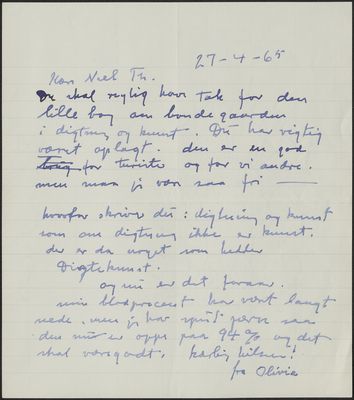 27-4-65
Kære Niels Th.
Du skal rigtig have tak for den
lille bog om bondegaarden
i digtning og kunst. Du har rigtig
været oplagt. den er en god
bog for turister og for vi andre.
men maa je vær saa fri —
hvorfor skriver du: digtning og kunst
som om digtning ikke er kunst.
der er da noget som hedder
Digtekunst.
og nu er det foraar.
min blodprocent har vært langt
nede. men je har spist jærn saa
den nu er oppe paa 94% og det
skal være godt. kærlig hilsen!
fra Olivia